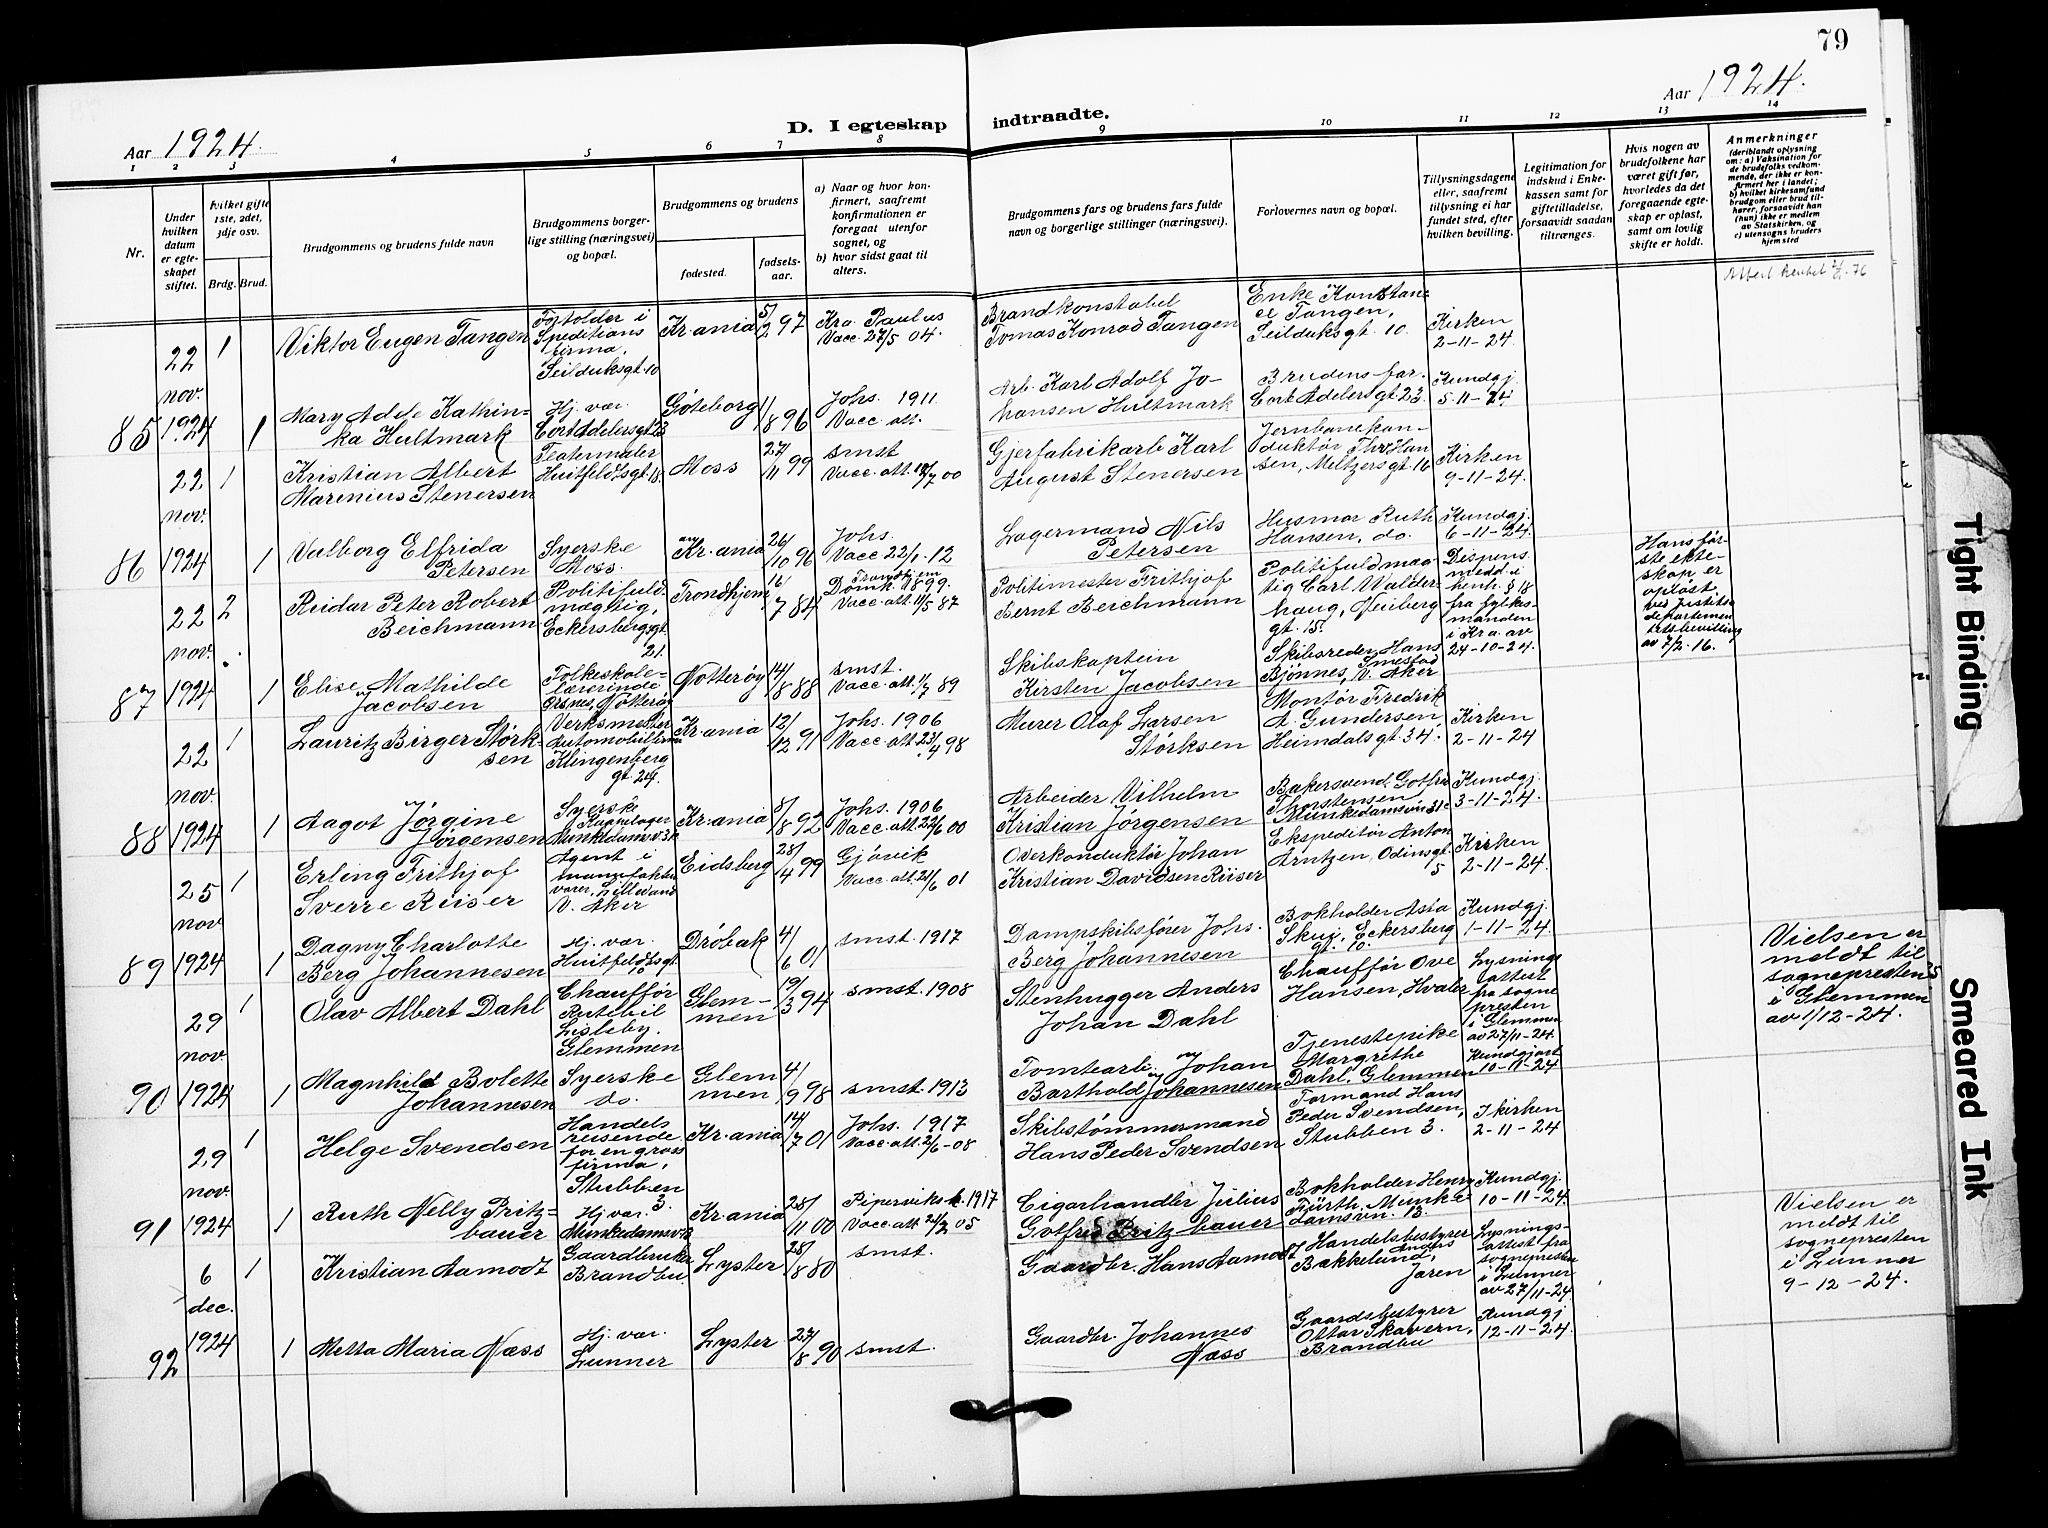 79
Aar 1924.
D. I egteskap
indtraadte.
Aar 1924.
1 2 3 4 5 6 7 8
9 10 11 12 13 14
Nr.
Under hvilken datum er egteskapet stiftet.
Hvilket gifte 1ste, 2det, 3dje osv.
Brdg. Brud.
Brudgommens og brudens fulde navn
Brudgommens borgerlige stilling (næringsvei) og bopæl.
Brudgommens og brudens
fødested.
fødselsaar.
a) Naar og hvor konfirmert, saafremt konfirmationen er foregaat utenfor sognet, og
b) hvor sidst gaat til alters.
Brudgommens fars og brudens fars fulde navn og borgerlige stillinger (næringsvei).
Forlovernes navn og bopæl.
Tillysningsdagene eller, saafremt tillysning ei har fundet sted, efter hvilken bevilling.
Legitimation for indskud i Enkekassen samt for giftetilladelse, forsaavidt saadan tiltrænges.
Hvis nogen av brudefolkene har været gift før, hvorledes da det foregaaende egteskap er opløst, samt om lovlig skifte er holdt.
Anmerkninger
(deriblandt oplysning om: a) Vaksination for de brudefolks vedkommende, der ikke er konfirmert her i landet; b) hvilket kirkesamfund brudgom eller brud tilhører, forsaavidt han (hun) ikke er medlem av Statskirken, og c) utensogns bruders hjemsted
85
22 nov. 1924
1
Viktor Eugen Tangen
Speditions firma, Seilduksgt. 10
Kr.ania
5/2 97
Kra. Paulus
Vacc. 27/5 04.
Brandkonstabel
Tomas Konrad Tangen
Enke Konstance Tangen,
Seilduksgt. 10.
Kirken
2-11-24.
1
Mary Adele Kathinka Hultmark
Hj. vær.
Cort Adelersgt 23
Gøteborg
11/8 96
Johs. 1911.
Vacc. att.
Arb. Karl Adolf Johansen Hultmark
Brudens far.
Cort Adelersgt 23.
Kundgj.
5-11-24.
86
22 nov. 1924
1
Kristian Albert
Marinius Stenersen
Teatermaler
Huitfeldtsgt. 18.
Moss
27/11 99
smst
Vacc. att. 12/7 00
Gjerfabrikarb. Karl
August Stenersen
Jernbanekonduktør Thr. Hansen, Meltzersgt. 16
Kirken
9-11-24.
1
Valborg Elfrida
Petersen
Syerske
Moss.
Kr.ania
26/10 96
Johs.
Vacc. 22/1. 12
Lagermand Nils
Petersen
Husmor Ruth
Hansen, do.
Kundgj.
6-11-24.
87
22 nov. 1924
2
Reidar Peter Robert
Beichmann
Politifuldmægtig,
Eckersbergsgt. 21.
Trondhjem
16/7 84
Trondhjem
Domk. 1899.
Vacc. att. 11/5 87
Politimester Frithjof
Bernt Beichmann
Politifuldmægtig Carl Walderhaug, Neuberg gt. 15.
Dispens. medd. i henh. § 18 fra fylkesmanden i Kra. av 24-10-24.
Hans første ekteskap er opløst ved Justitsdepartementets bevilling av 7/2. 16.
1
Elise Mathilde
Jacobsen
Folkeskolelærerinde
Ørsnes, Nøtterøy
Nøtterøy
14/8 88
smst.
Vacc. att. 1/7 89
Skibskaptein
Kirsten Jacobsen
Skibsreder Hans
Bjønnes, Smestad V. Aker
88
22 nov. 1924
1
Lauritz Birger Størksen
Verksmester
Automobilfirma
Klingenberg gt. 24.
Kr.ania
12/12 91
Johs. 1906
Vacc. att. 23/4 98
Murer Olaf Larsen
Størksen
Montør Fredrik
A. Gundersen,
Heimdalsgt. 34.
Kirken
2-11-24
1
Aagot Jørgine
Jørgensen
Syerske
Munkedamsv. 31
Kr.ania
8/8 92
Johs. 1906
Vacc. att. 22/6 00
Arbeider Vilhelm
Kristian Jørgensen
Bakersvend Gotfred
Thorstensen
Munkedamsvn 31c
Kundgj.
3-11-24.
89
25 nov 1924
1
Erling Frithjof
Sverre Riiser
Agent i manufakturvarer, Lillevand
V. Aker
Eidsberg
28/4 99
Gjøvik
Vacc. att. 21/6 01
Overkonduktør Johan
Kristian Davidsen Riiser
Ekspeditør Anton
Arntzen, Odinsgt. 5
Kirken
2-11-24.
1
Dagny Charlotte
Berg Johannesen
Hj. vær.
Huitfeldtsgt. 10
Drøbak
4/6 01
smst. 1917
Dampskibsfører Johs.
Berg Johannesen
Bokholder Asta
Skui, Eckersberg gt. 10.
Kundgj.
1-11-24.
90
29 nov. 1924
1
Olav Albert Dahl
Chauffør
Rutebil
Lisleby.
Glemmen
Glemmen
19/3 94
smst. 1908
Stenhugger Anders
Johan Dahl
Chauffør Ove
Hansen, Hvaler
Lysningsattest fra sognepresten i Glemmen av 27/11-24.
Vielsen er meldt til sognepresten i Glemmen av 1/12-24.
1
Magnhild Bolette
Johannesen
Syerske
do.
Glemmen
4/9 98
smst. 1913
Tomtearb. Johan
Barthold Johannesen
Tjenestepike
Margrethe
Dahl, Glemmen
Kundgjort
10-11-24
91
29 nov. 1924
1
Helge Svendsen
Handelsreisende for en gross firma, Stubben 3.
Kr.ania
14/7 01
Johs. 1917
Vacc. att. 2/6-08
Skibstømmermand
Hans Peder Svendsen
Formand Hans
Peder Svendsen,
Stubben 3.
I kirken
2-11-24
1
Ruth Nelly Pritzbauer
Hj. vær.
Munkedamsv. 13
Kr.ania
28/11 00
Piperviks k. 1917
Vacc. att. 21/2 05
Cigarhandler Julius
Gotfred Pritzbauer
Bokholder Henry
Fürth. Munkedamsvn. 13.
Kundgj.
10-11-24.
92
6 dec. 1924
1
Kristian Aamodt
Gaardbruker
Brandbu
Lyster
28/8 80
smst.
Gaardbr. Hans Aamodt
Handelsbestyrer
Anders Bakkelund,
Jaren
Lysningsattest fra sognepresten i Lunner av 27/11-24.
Vielsen er meldt til sognepresten i Lunner 9-12-24.
1
Metta Maria Næss
Hj. vær.
Lunner
Lyster
27/8 90
smst.
Gaardbr. Johannes
Næss
Gaardsbestyrer
Ottar Skavern,
Brandbu
Kundgj
12-11-24.
Tight Binding
Smeared Ink